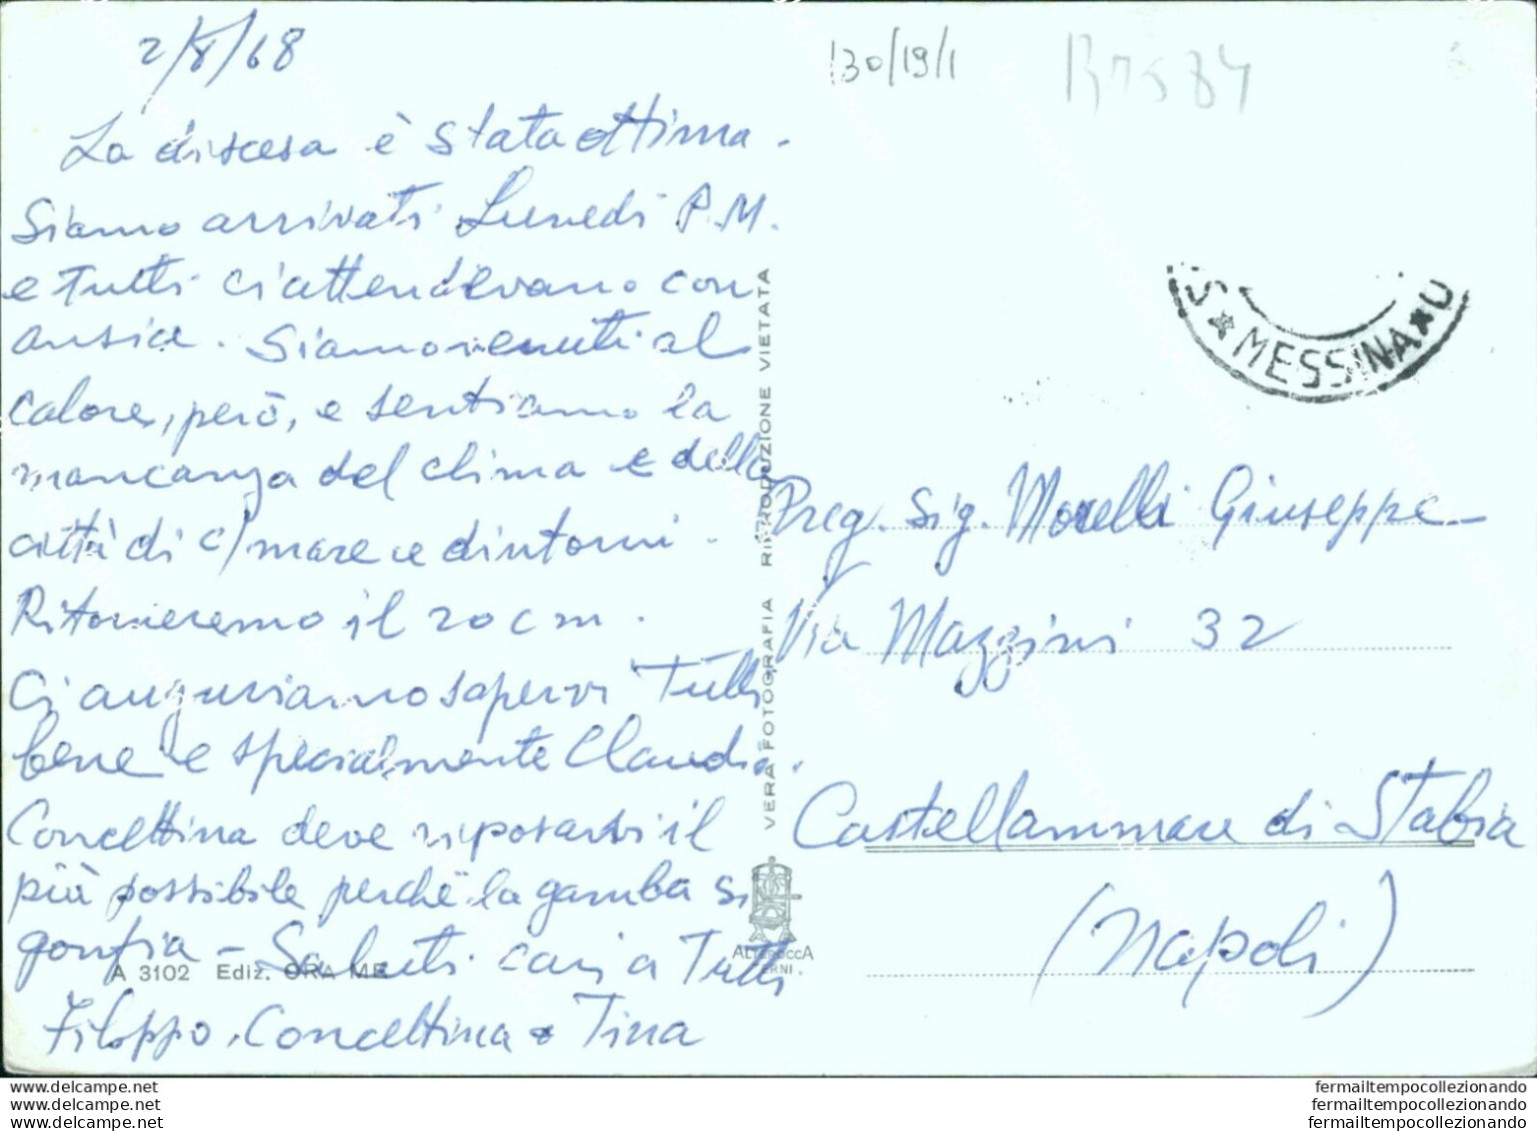 2/8/68
La discesa è stata ottima.
Siamo arrivati Lunedi P.M.
e tutti ci attendevano con
ansia. Siamo venuti al
calore, però, e sentiamo la
mancanza del clima e della
città di c/mare e dintorni.
Ritorneremo il 20 c m.
Ci auguriamo sapervi Tutti
bene e specialmente Claudia.
Concettina deve riposarsi il
più possibile perchè la gamba si
gonfia - Saluti cari a Tutti
Filippo, Concettina e Tina
A 3102 Ediz. ORA ME
VERA FOTOGRAFIA RIPRODUZIONE VIETATA
ALTEROCCA
TERNI.
130/19/1
S * MESSINA * U
Preg. Sig. Morelli Giuseppe
Via Mazzini 32
Castellammare di Stabia
(Napoli)
www.delcampe.net
www.delcampe.net
www.delcampe.net
fermailtempocollezionando
fermailtempocollezionando
fermailtempocollezionando